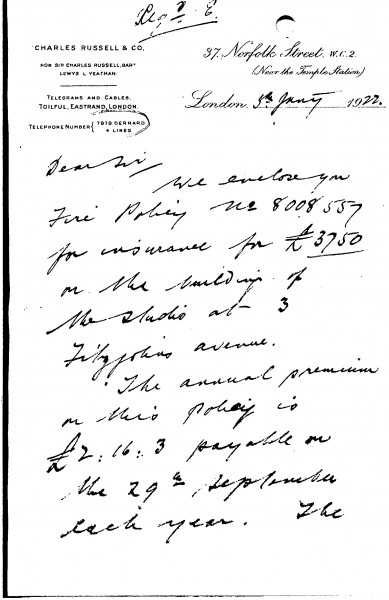 Regd E.
CHARLES RUSSELL & CO.
HON SIR CHARLES RUSSELL, BART
LEWYS L. YEATMAN.
TELEGRAMS AND CABLES,
TOILFUL, EASTRAND, LONDON.
TELEPHONE NUMBER { 7979 GERRARD
4 LINES
37, Norfolk Street, W.C.2.
(Near the Temple Station)
London, 5th Jany 1922.
Dear Sir,
We enclose you
Fire Policy No 8008557
for insurance for £3750
on the building of
the studio at 3
Fitzjohns avenue.
The annual premium
on this policy is
£2:16:3 payable on
the 29th September
each year. The